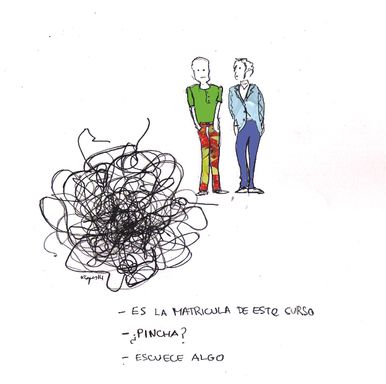 - ES LA MATRICULA DE ESTE CURSO
- ¿PINCHA?
- ESCUECE ALGO